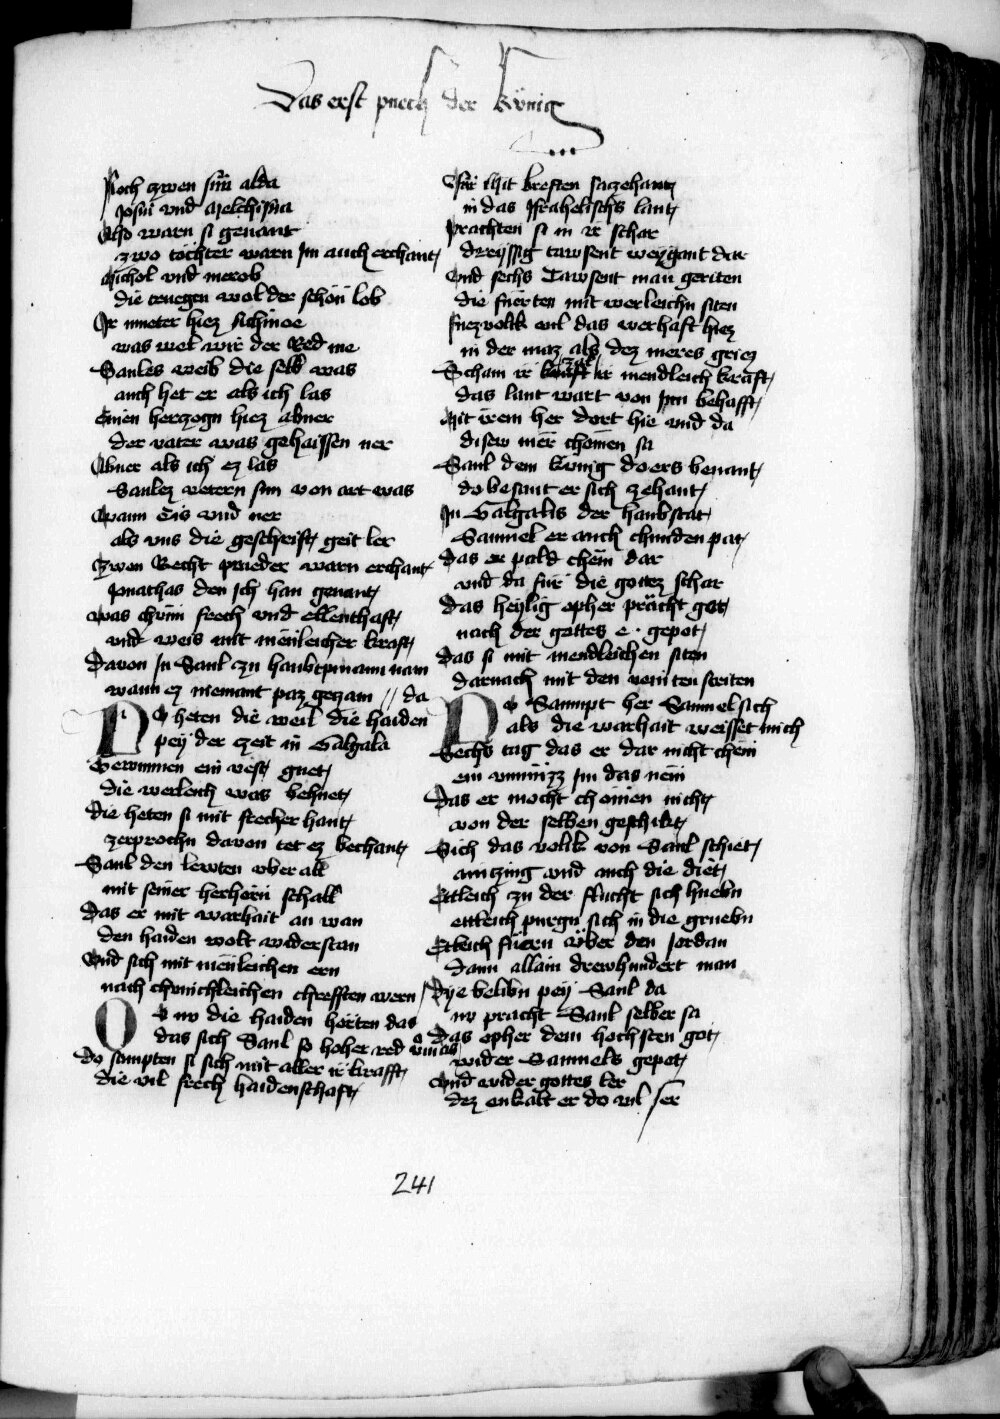 Das erst puech der künig
Noch zwen sün alda
Josui vnd Melchisua
Also warn si genant
zwo töchter warn Im auch erchant
Michol vnd merob
die truegen wol der schön lob
Ir mueter hiez Achinoe
was welt wir der Red me
Saules weib die selb was
auch het er als ich las
Einen herczogn hiez abner
der vater was gehaissen ner
Abner als ich ez las
Saulez vetern sun von art was
Wann Cis vnd ner
als vns die geschrift geit ler
Zwen Recht prueder warn erchant
Jonathas den ich han genant
was chün frech vnd ellenthaft
vnd weis mit mënleicher kraft
Davon In Saul zu haubtmann nam
wann ez niemant paz gezam // da
Do heten die weil die haiden
pey der zeit in Galgala
Gewunnen ein vest guet
die werleich was behuet
Die heten si mit frecher hant
zerprochn davon tet ez bechant
Saul den lewten vberall
mit seiner herhorn schall
Das er mit warhait an wan
den haiden wolt widerstan
Vnd sich mit mënleichen ern
nach chünichleichen chrefften wern
Do nv die haiden hörten das
das sich Saul so hoher red vmas
Do sampten si sich mit aller ir krafft
die vil frech haidenschaft
Für Mit kreften sazehant
in das Israhelischs lant
Prachten si in ir schar
dreyssig tawsent weygant dar
Vnd sechs Tawsent man geriten
die fuerten mit werleichn siten
Fuezvolkk vil das werhaft hiez
in der maz als dez meres griez
Scham ir zal ir mendleich kraft
das lant wart von In behafft
Mit irem her dort hie vnd da
disew mër chomen sa
Saul dem kunig do ers benant
do besant er sich zehant
In Galgalis der haubstat
Samuel er auch chunden pat
Das er pald chem dar
vnd da für die gottez schar
Das heylig opher prächt got
nach der gottes e . gepot
Das si mit mendleichen siten
darnach mit den veinten striten
Do Saumpt her Samuel sich
als die warhait weisset mich
Sechs tag das er dar nicht chëm
ein vnmüzz Im das nëm
Das er mocht chomen nicht
von der selben geschikt
Sich das volkk von Saul schiet
aintzing vnd auch die diet
Ettleich zu der flucht sich huebn
ettleich purgn sich in die gruebn
Etleich fuern über den Jordan
Dann allain drewhundert man
Dye belibn pey Saul da
nv pracht Saul selber sa
Das opher dem hochsten got
wider Samuels gepot
Vnd wider gottes ler
dez enkalt er do vil ser
241